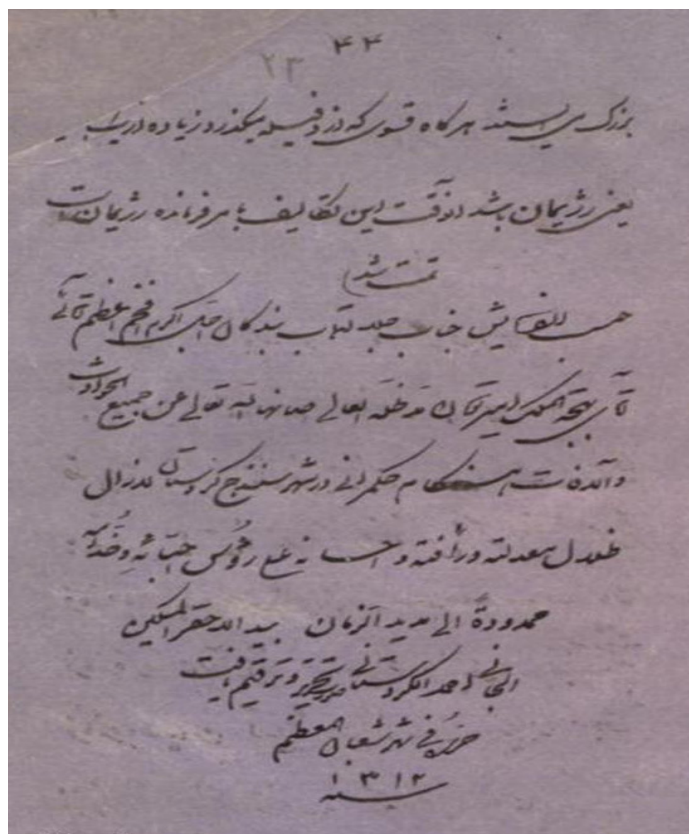 ۴۴
۲۳
بزرگ می ایستند هر گاه قسوی که در دفیله میگذرد زیاده از یک
یعنی رژیمان باشد آنوقت این تکالیف با سر فرمانده رژیمان است
تمت شد
حسب الفرمایش جناب جلالتمآب بندگان اجل اکرم افخم اعظم آقائی
آقای بهجة الملک امیرتومان مد ظله العالی صانها الله تعالی عن جمیع الحوادث
والآفات هنگام حکمرانی در شهر سنندج کردستان لازال
ظلال معدلته ورأفته و احسانه علی رؤس احبائه وخدامه
ممدودة الی مدید الزمان بید الاحقر المسکین
الجانی احمد الکردستانی تحریر و ترقیم یافت
فی شهر شعبان المعظم
سنه ۱۳۱۲